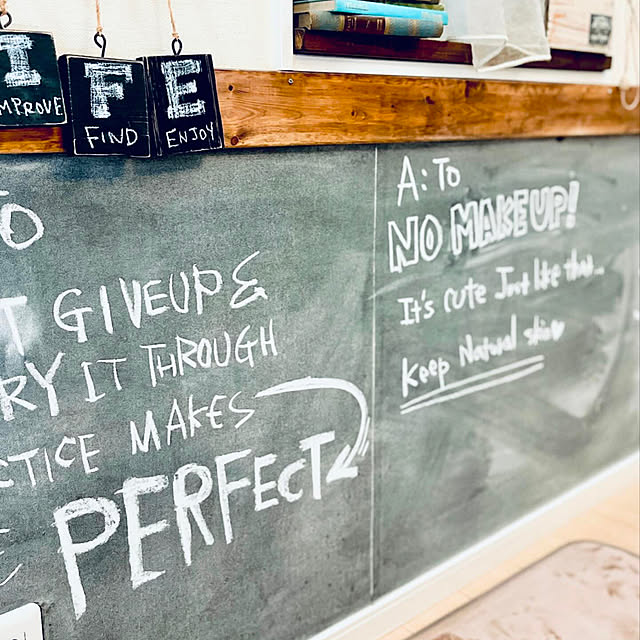 I
IMPROVE
F
FIND
E
ENJOY
TO
T GIVEUP &
RY IT THROUGH
CTICE MAKES
PERFECT
A: To
NO MAKEUP!
It's cute Just like this...
Keep Natural skin♥